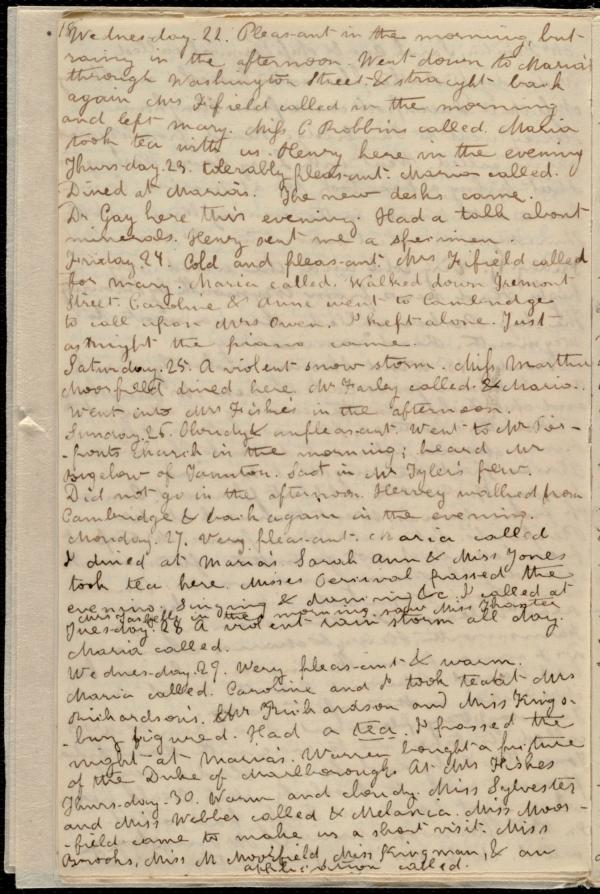 Wednesday. 22. Pleasant in the morning, but
rainy in the afternoon. Went down to Maria's
through Washington Street & straight back
again Mrs Fifield called in the morning
and left Mary. Miss C Robbins called. Maria
took tea with us. Henry here in the evening
Thursday. 23. tolerably pleasant. Maria called.
Dined at Maria's. The new desks came.
Dr Gay here this evening. Had a talk about
minerals. Henry sent me a specimen.
Friday. 24. Cold and pleasant. Mrs Fifield called
for Mary. Maria called. Walked down Tremont
Street. Caroline & Anne went to Cambridge
to call upon Mrs Owen. I kept alone. Just
at night the piano came.
Saturday. 25. A violent snow storm. Miss Martha
Moorfield dined here Mr Farley called. & Maria.
Went into Mrs Fiske's in the afternoon.
Sunday. 26. Cloudy & unpleasant. Went to Mr
Church in the morning; heard Mr
Bigelow of Taunton. Sat in Mr Tyler's pew.
Did not go in the afternoon. Hervey walked from
Cambridge & back again in the evening.
Monday. 27. Very pleasant. Maria called
I dined at Maria's. Sarah Ann & Miss Jones
took tea here. Misses Percival passed the
evening. Singing & &c. I called at
Mrs in the morning saw Miss Thaxter
Tuesday. 28 A violent rain storm all day.
Maria called.
Wednesday. 29. Very pleasant & warm.
Maria called. Caroline and I took tea at Mrs
Richardson's. Mr Richardson and Miss Kings-
-bury figured. Had a tea. I passed the
night at Maria's. Warren bought a picture
of the Duke of Marlborough. At Mrs Fiskes
Thursday. 30. Warm and cloudy. Miss Sylvester
and Miss Webber called & Melancia. Miss Moor-
-field came to make us a short visit. Miss
Brooks, Miss M Moorfield Miss Kingman, & an
application called.